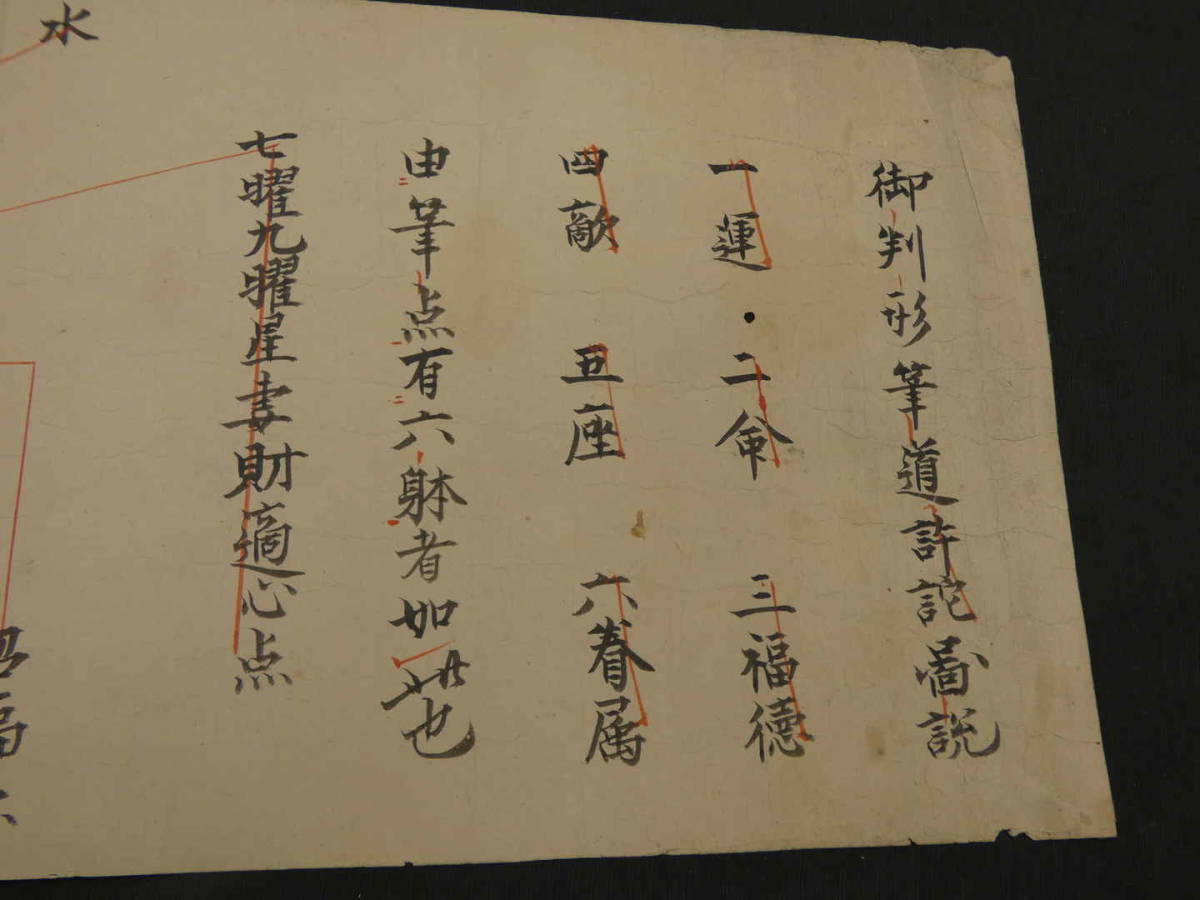 御判形筆道許詫啚説
一運・二命 三福德
四敵 五座 六眷属
由筆点有六躰者如此也
七曜九曜星妻財適心点
水
福